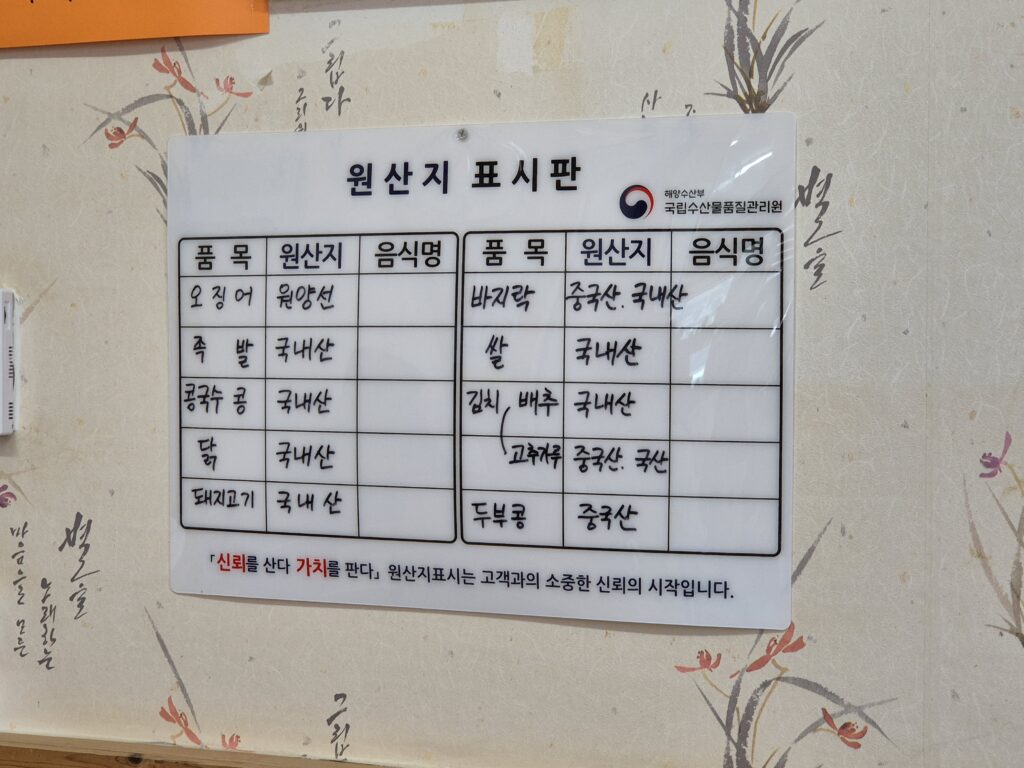 원산지 표시판
해양수산부
국립수산물품질관리원
품 목 원산지 음식명
오징어 원양선
족 발 국내산
콩국수 콩 국내산
닭 국내산
돼지고기 국내산
품 목 원산지 음식명
바지락 중국산. 국내산
쌀 국내산
김치 배추 국내산
고추가루 중국산. 국산
두부콩 중국산
「신뢰를 산다 가치를 판다」 원산지표시는 고객과의 소중한 신뢰의 시작입니다.
그립다
별을
별을
마음을 모든
노래하는
그립